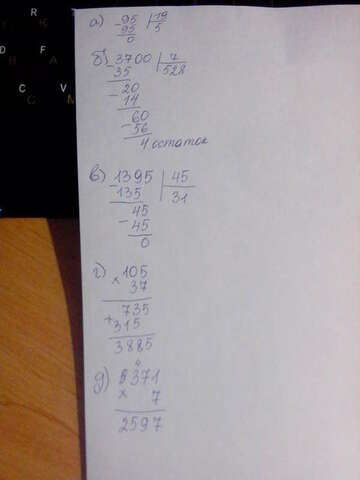 R
D
F
A
C
V
M
а) -95 |19
95 5
0
б) 3700 |7
-35 528
-20
14
60
-56
4 остаток
в) -1395 |45
135 31
45
-45
0
г) 105
× 37
735
+315
3885
д) 371
× 7
2597